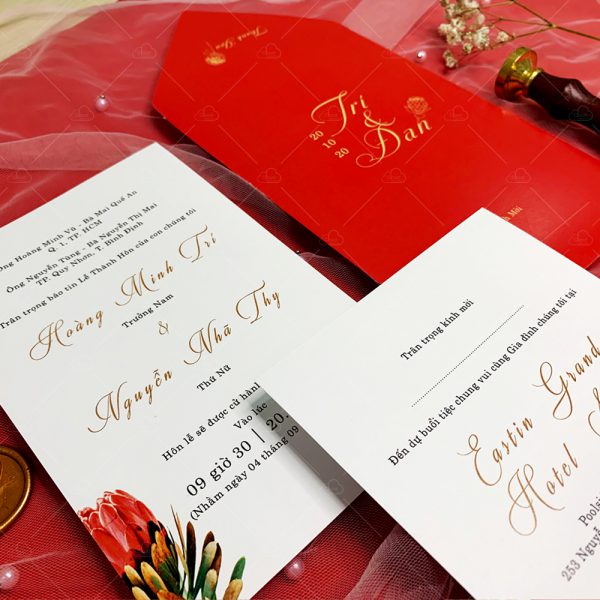 Thank You
Trí
&
Đan
20
10
20
Mời
Ông Hoàng Minh Vũ - Bà Mai Quế An
Q. 1, TP. HCM
Ông Nguyễn Tùng - Bà Nguyễn Thị Mai
TP. Quy Nhơn, T. Bình Định
Trân trọng báo tin Lễ Thành Hôn của con chúng tôi
Hoàng Minh Trí
Trưởng Nam
&
Nguyễn Nhã Thy
Thứ Nữ
Hôn lễ sẽ được cử hành
Vào lúc
09 giờ 30 | 20.
(Nhằm ngày 04 tháng 09
Trân trọng kính mời
Đến dự buổi tiệc chung vui cùng Gia đình chúng tôi tại
Eastin Grand
Hotel
Poolsi
253 Nguyễ